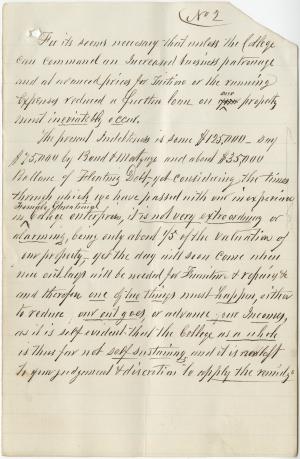 No 2
For it seems necessary that unless the College
can command an Increased business patronage
and at advanced prices for Tuition or the running
Expenses reduced a further Loan on our property
must inevitably occur.
The present Indebtness is some $125,000 – say
$75,000 by Bond & Mortgage and about $35,000
Ballance of Floating Debt, yet considering the times
through which we have passed with our inexperience
in Female Educational College enterprises, it is not very extraordinary or
alarming, being only about 1/5 of the valuation of
our property, yet the day will soon come when
new outlays will be needed for Furniture & repairs &c
and therefore one of two things must happen, either
to reduce our out goes, or advance our Incomes,
as it is self evident that the College as a whole
is thus far not self sustaining, and it is now left
to your judgement & discretion to apply the remidy